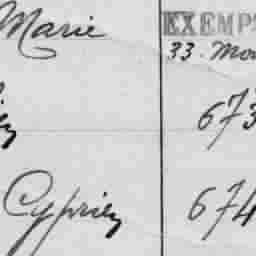 Marie EXEMP
33. Mo
673
Cyprien 674